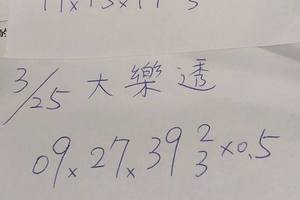 3/25 大樂透
09×27×39 2/3×0.5